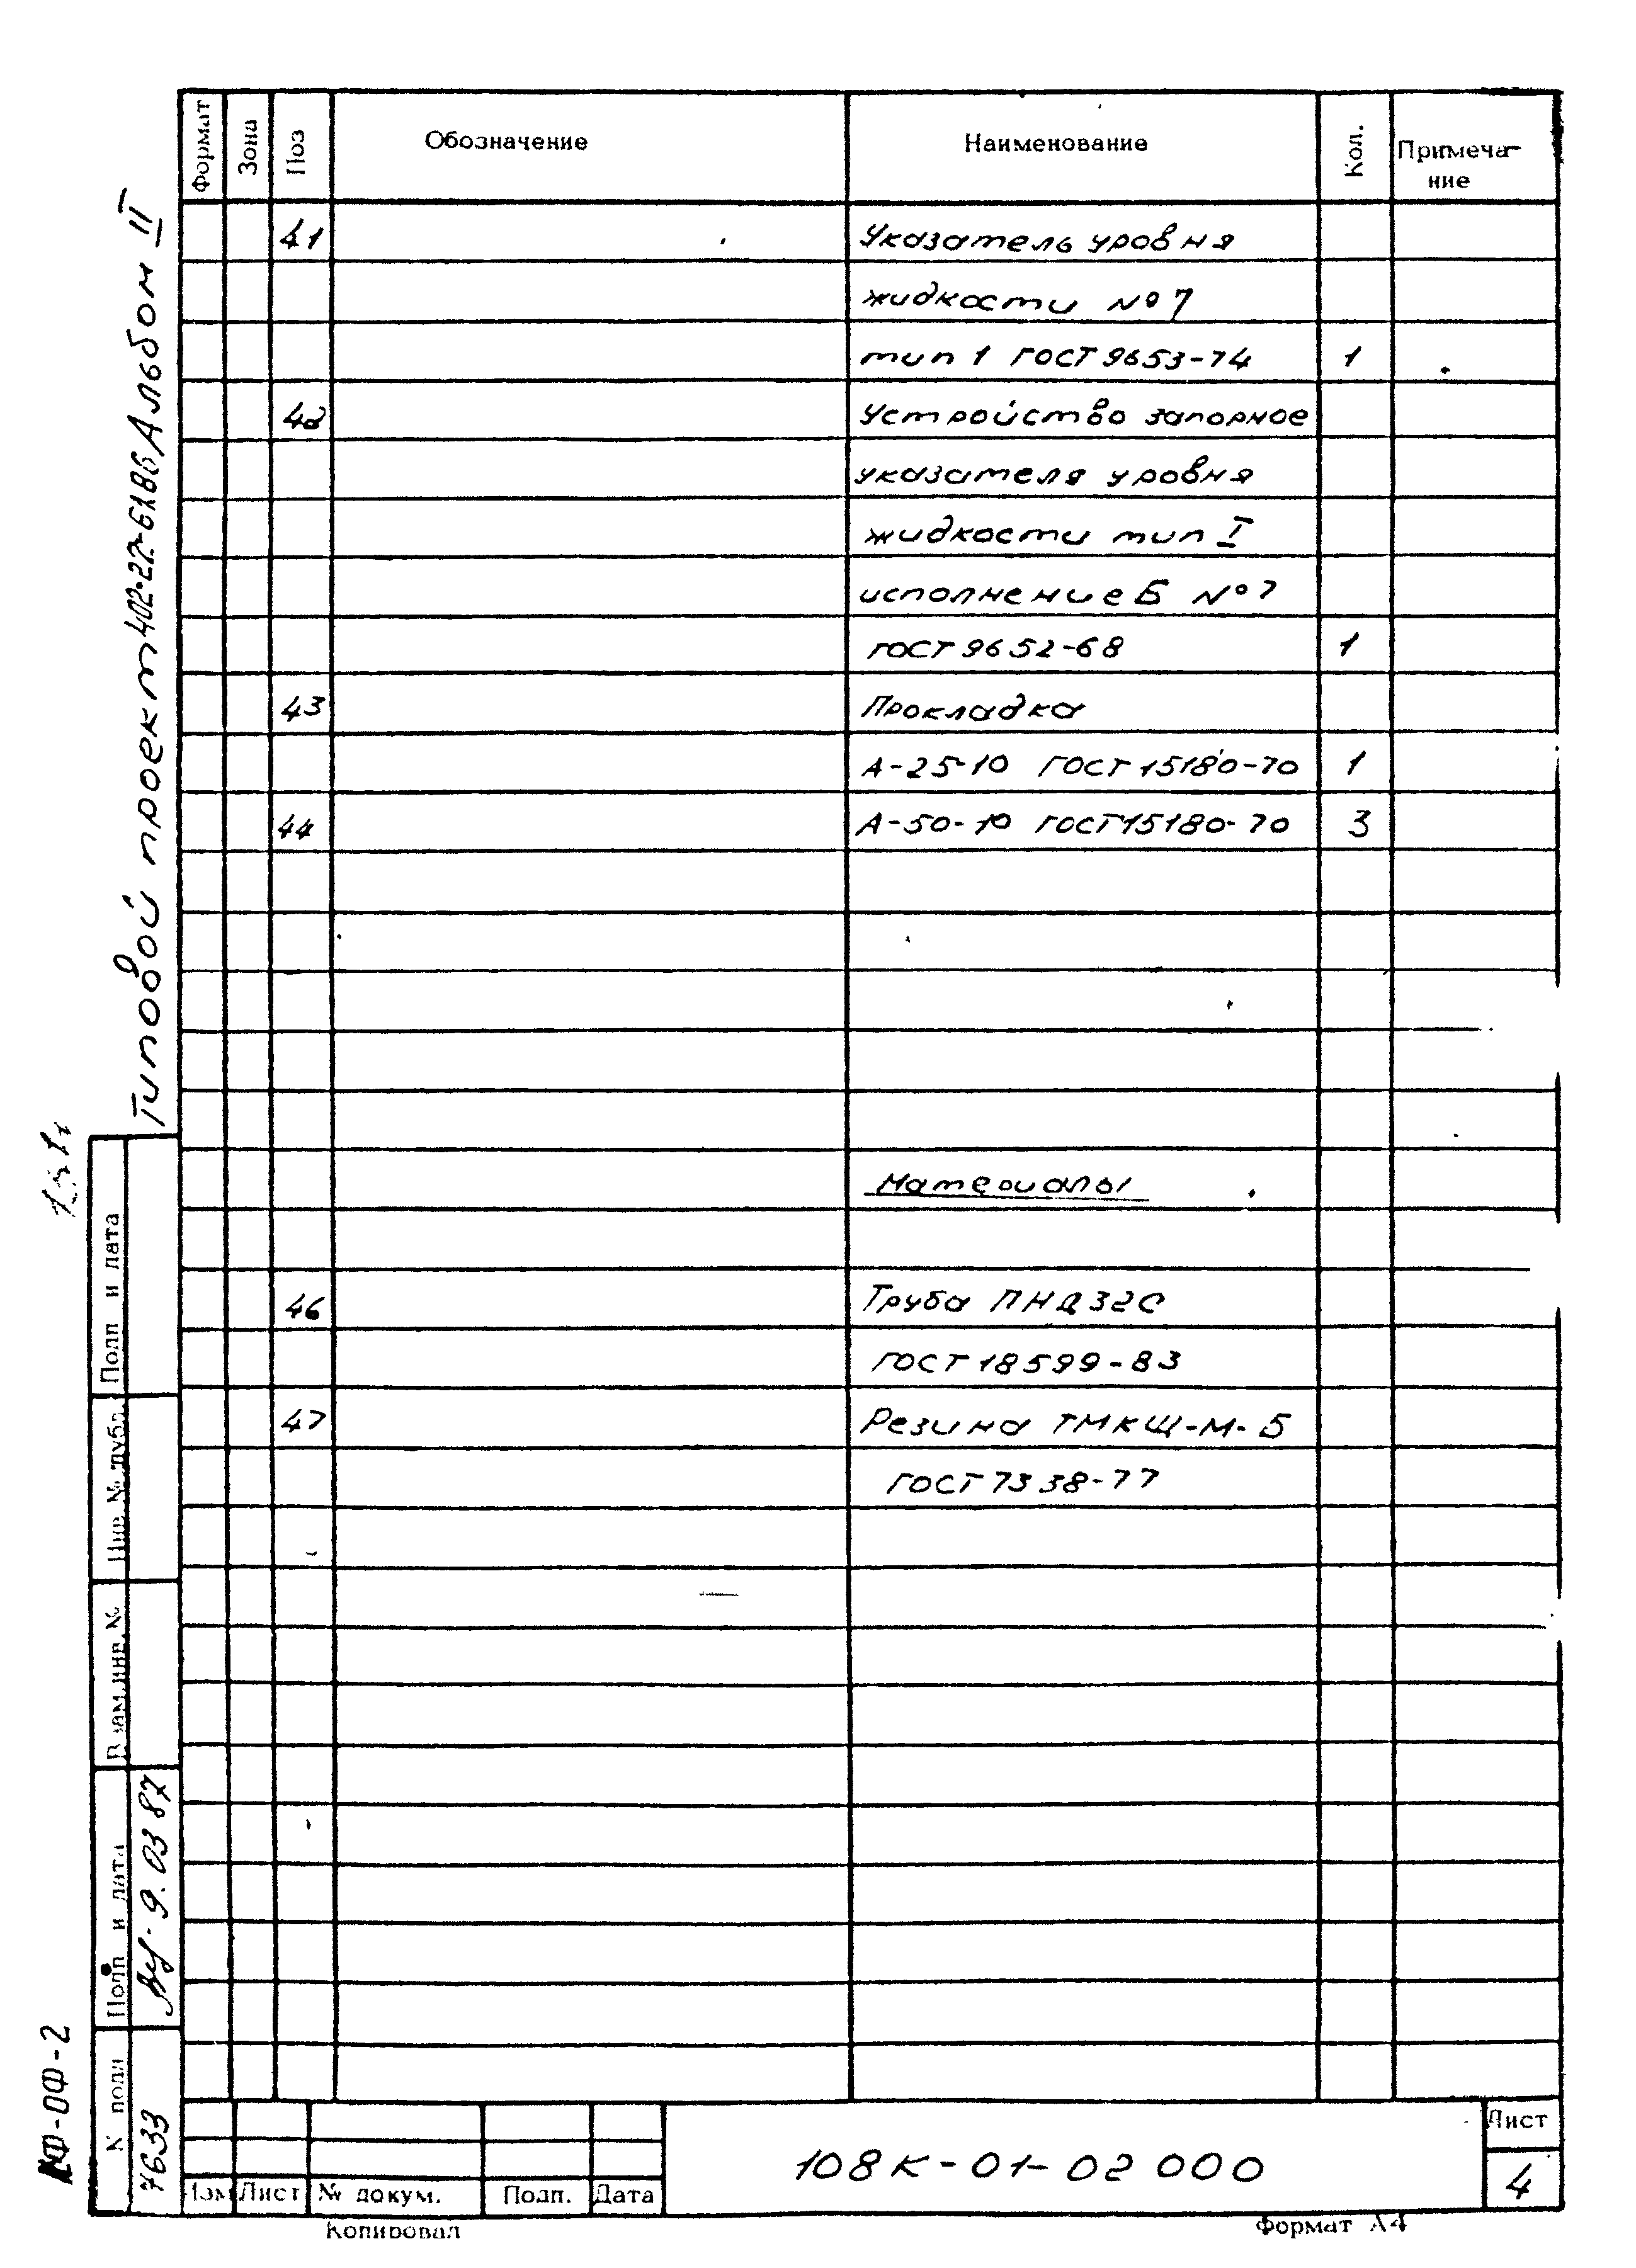 Формат Зона Поз Обозначение Наименование Кол. Примеча-
ние
41 Указатель уровня
жидкости №7
тип 1 ГОСТ 9653-74 1
42 Устройство запорное
указателя уровня
жидкости тип I
исполнение Б №7
ГОСТ 9652-68 1
43 Прокладка
А-25-10 ГОСТ 15180-70 1
44 А-50-10 ГОСТ 15180-70 3
Материалы
46 Труба ПНД 32С
ГОСТ 18599-83
47 Резина ТМКЩ-М-5
ГОСТ 7338-77
Типовой проект 402-22-61.86 Альбом II
Подп и дата
Инв № дубл.
Взам.инв.№
Подп и дата
9.03 87
подл
7633
КФ-ОФ-2
Изм Лист № докум. Подп. Дата
108К-01-02 000
Лист
4
Копировал
Формат А4